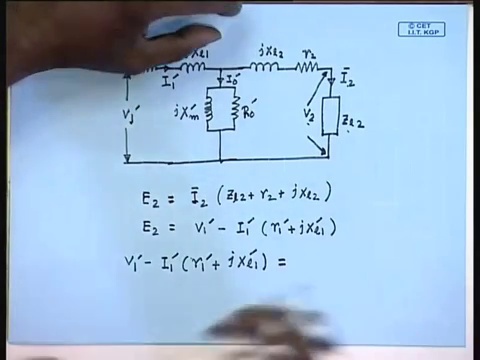 © CET
I.I.T. KGP
jxℓ1 jxℓ2 r2
I1′ I0′ Ī2
V1′ jXm′ R0′ V2 Zℓ2
E2 = Ī2 (Zℓ2 + r2 + jxℓ2)
E2 = V1′ − I1′ (r1′ + jxℓ1′)
V1′ − I1′ (r1′ + jxℓ1′) =